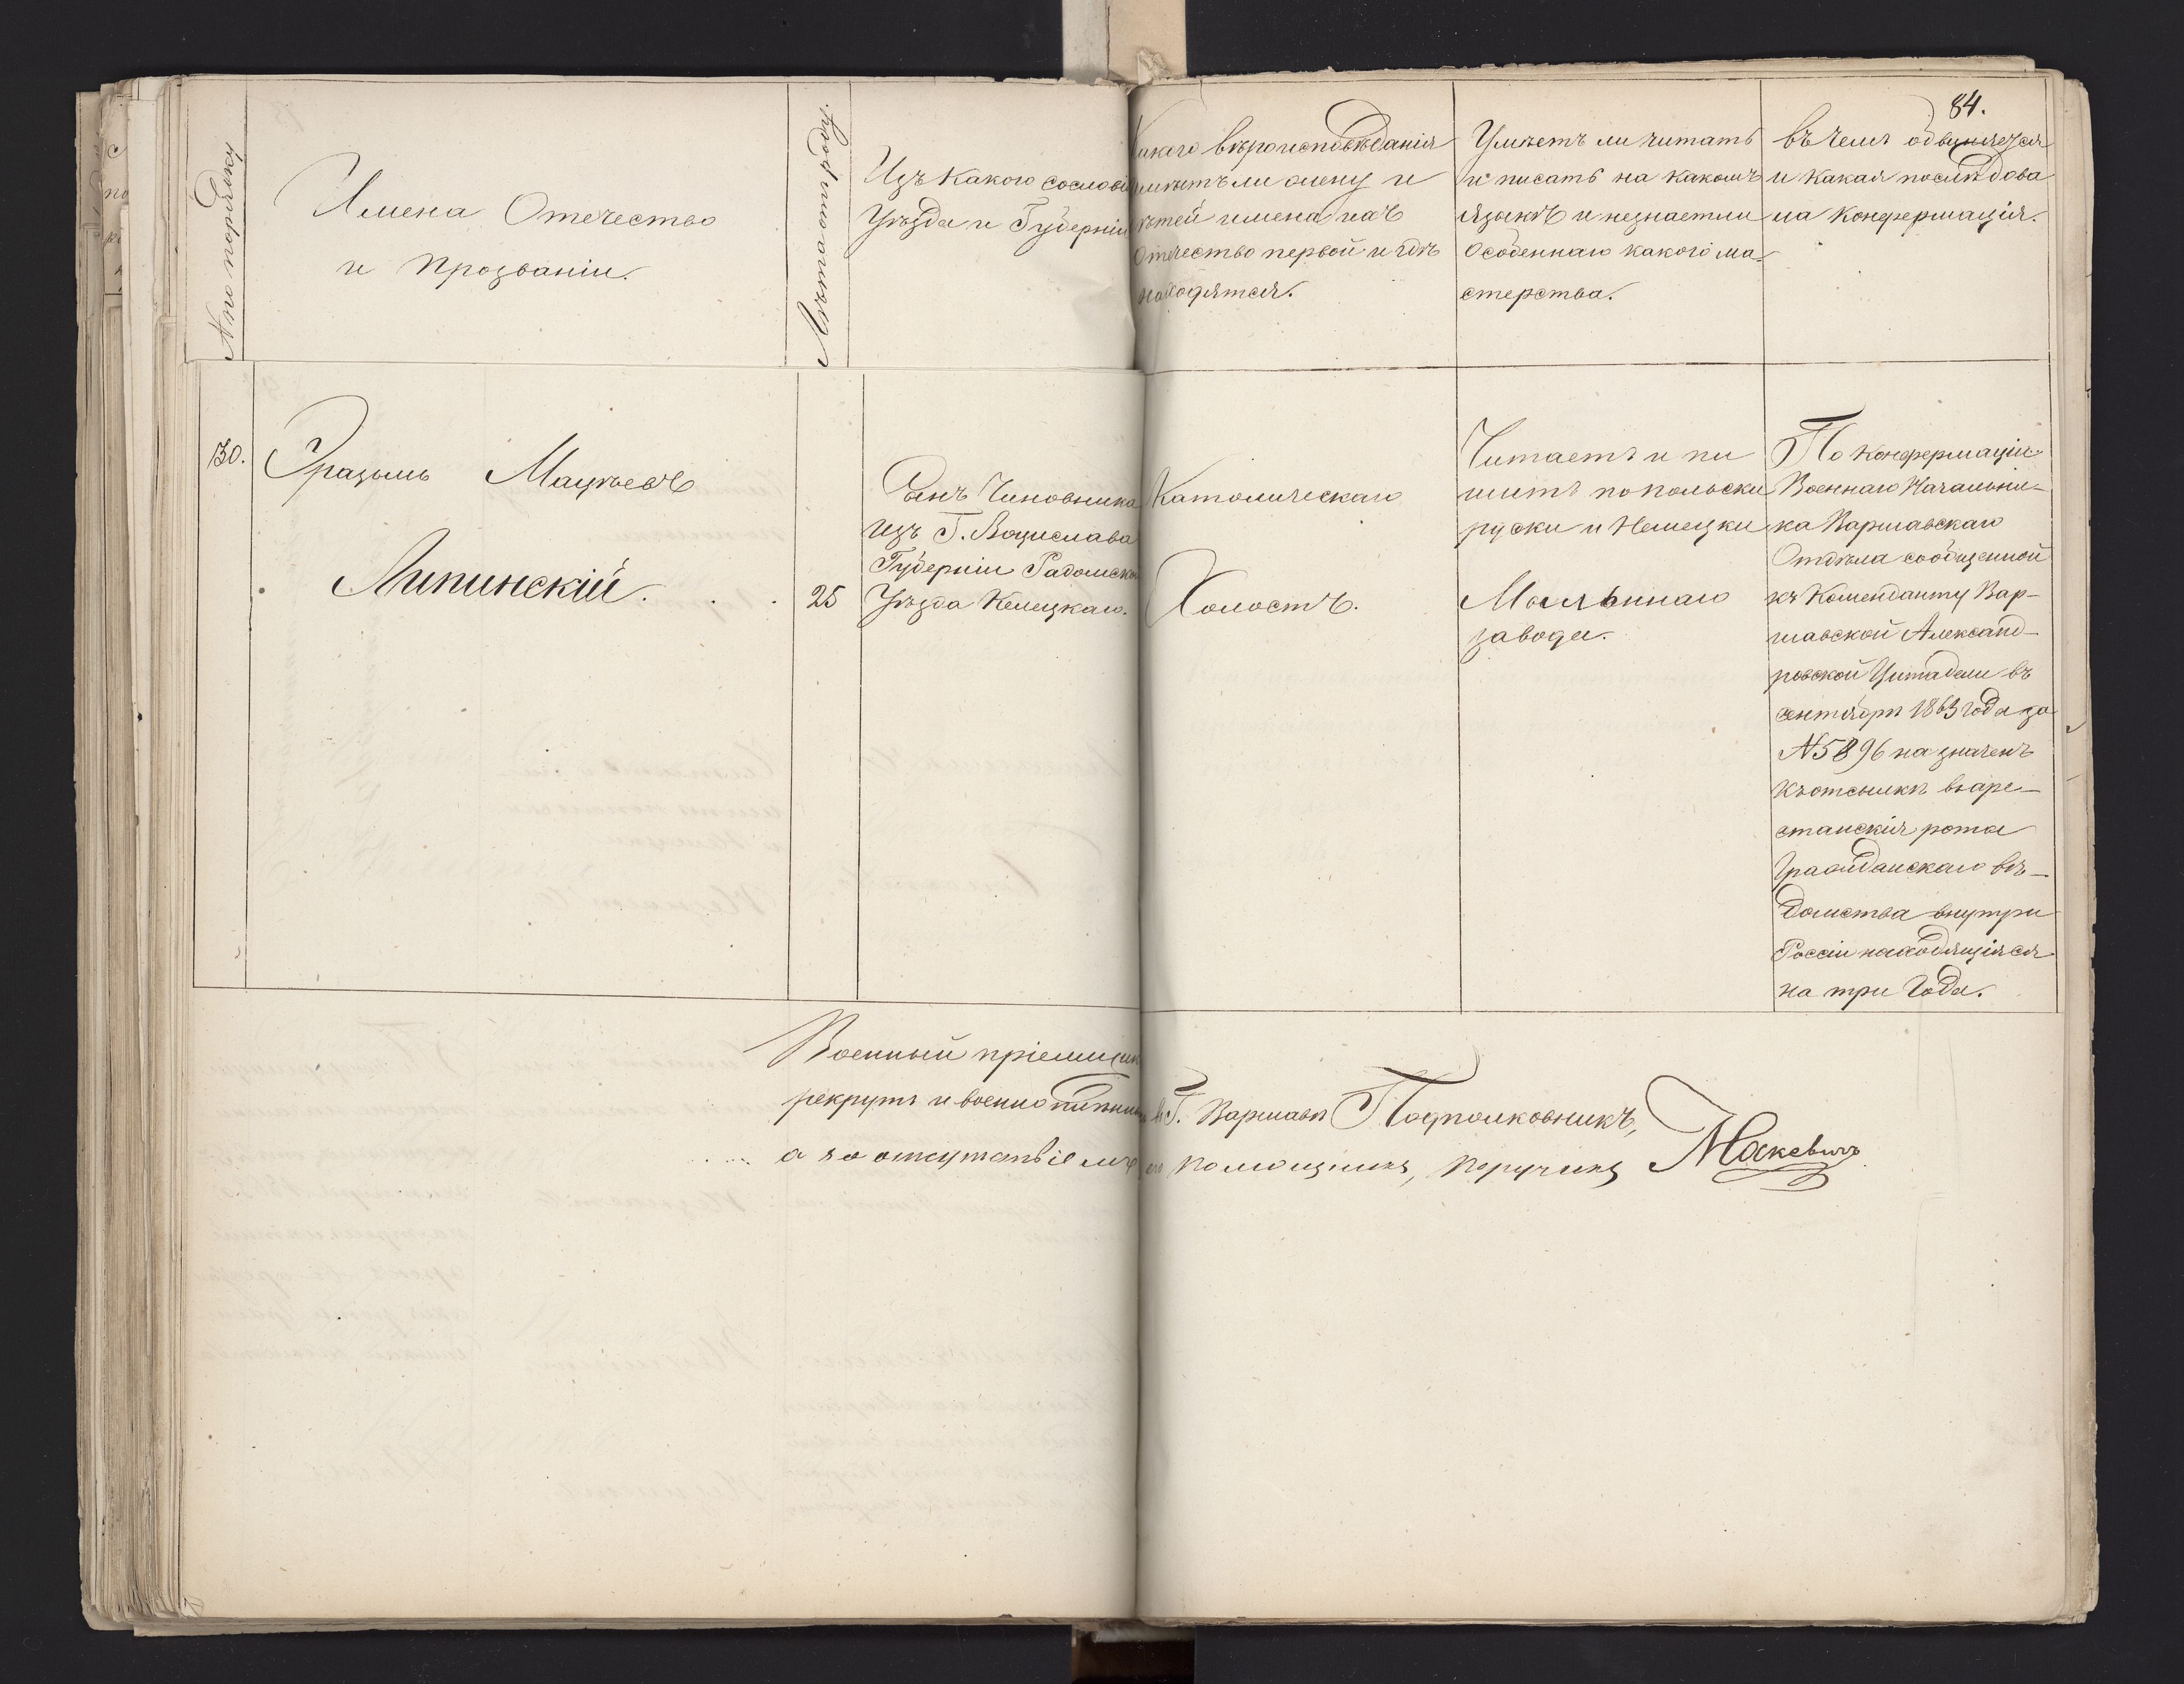 84.
№ по порядку
Имена Отечество
и Прозваніи.
Лѣта отъ роду.
Изъ какого сословія
Уѣзда и Губерніи
Какого вѣроисповѣданія
имѣетъ ли жену и
дѣтей имена ихъ
Отечество первой и гдѣ
находятся.
Умѣетъ ли читать
и писать на какомъ
языкѣ и незнаетли
особеннаго какого ма-
стерства.
въ чемъ обвиняется
и какая послѣдова
ла конфермація.
130.
Эразымъ Мацѣевъ
Липинскій.
25
Сынъ Чиновника
изъ Г. Водислава
Губерніи Радомской
Уѣзда Келецкаго.
Католическаго
Холостъ.
Читаетъ и пи
шитъ попольски
руски и Немецки
Мыльннаго
завода.
По конфермаціи
Военнаго Начальни-
ка Варшавскаго
Отдѣла сообщенной
къ Коменданту Вар-
шавской Александ-
ровской Цитадели въ
сентябрѣ 1863 года за
№ 5896 назначенъ
къотсылкѣ варе-
станскія роты
Гражданскаго вѣ-
домства внутри
Россіи находящіяся
на три Года.
Военный пріемщикъ
рекрутъ и военно въ Г. Варшавѣ Подполковникъ,
а за отсутствіемъ его помощникъ, поручикъ Маскевичъ